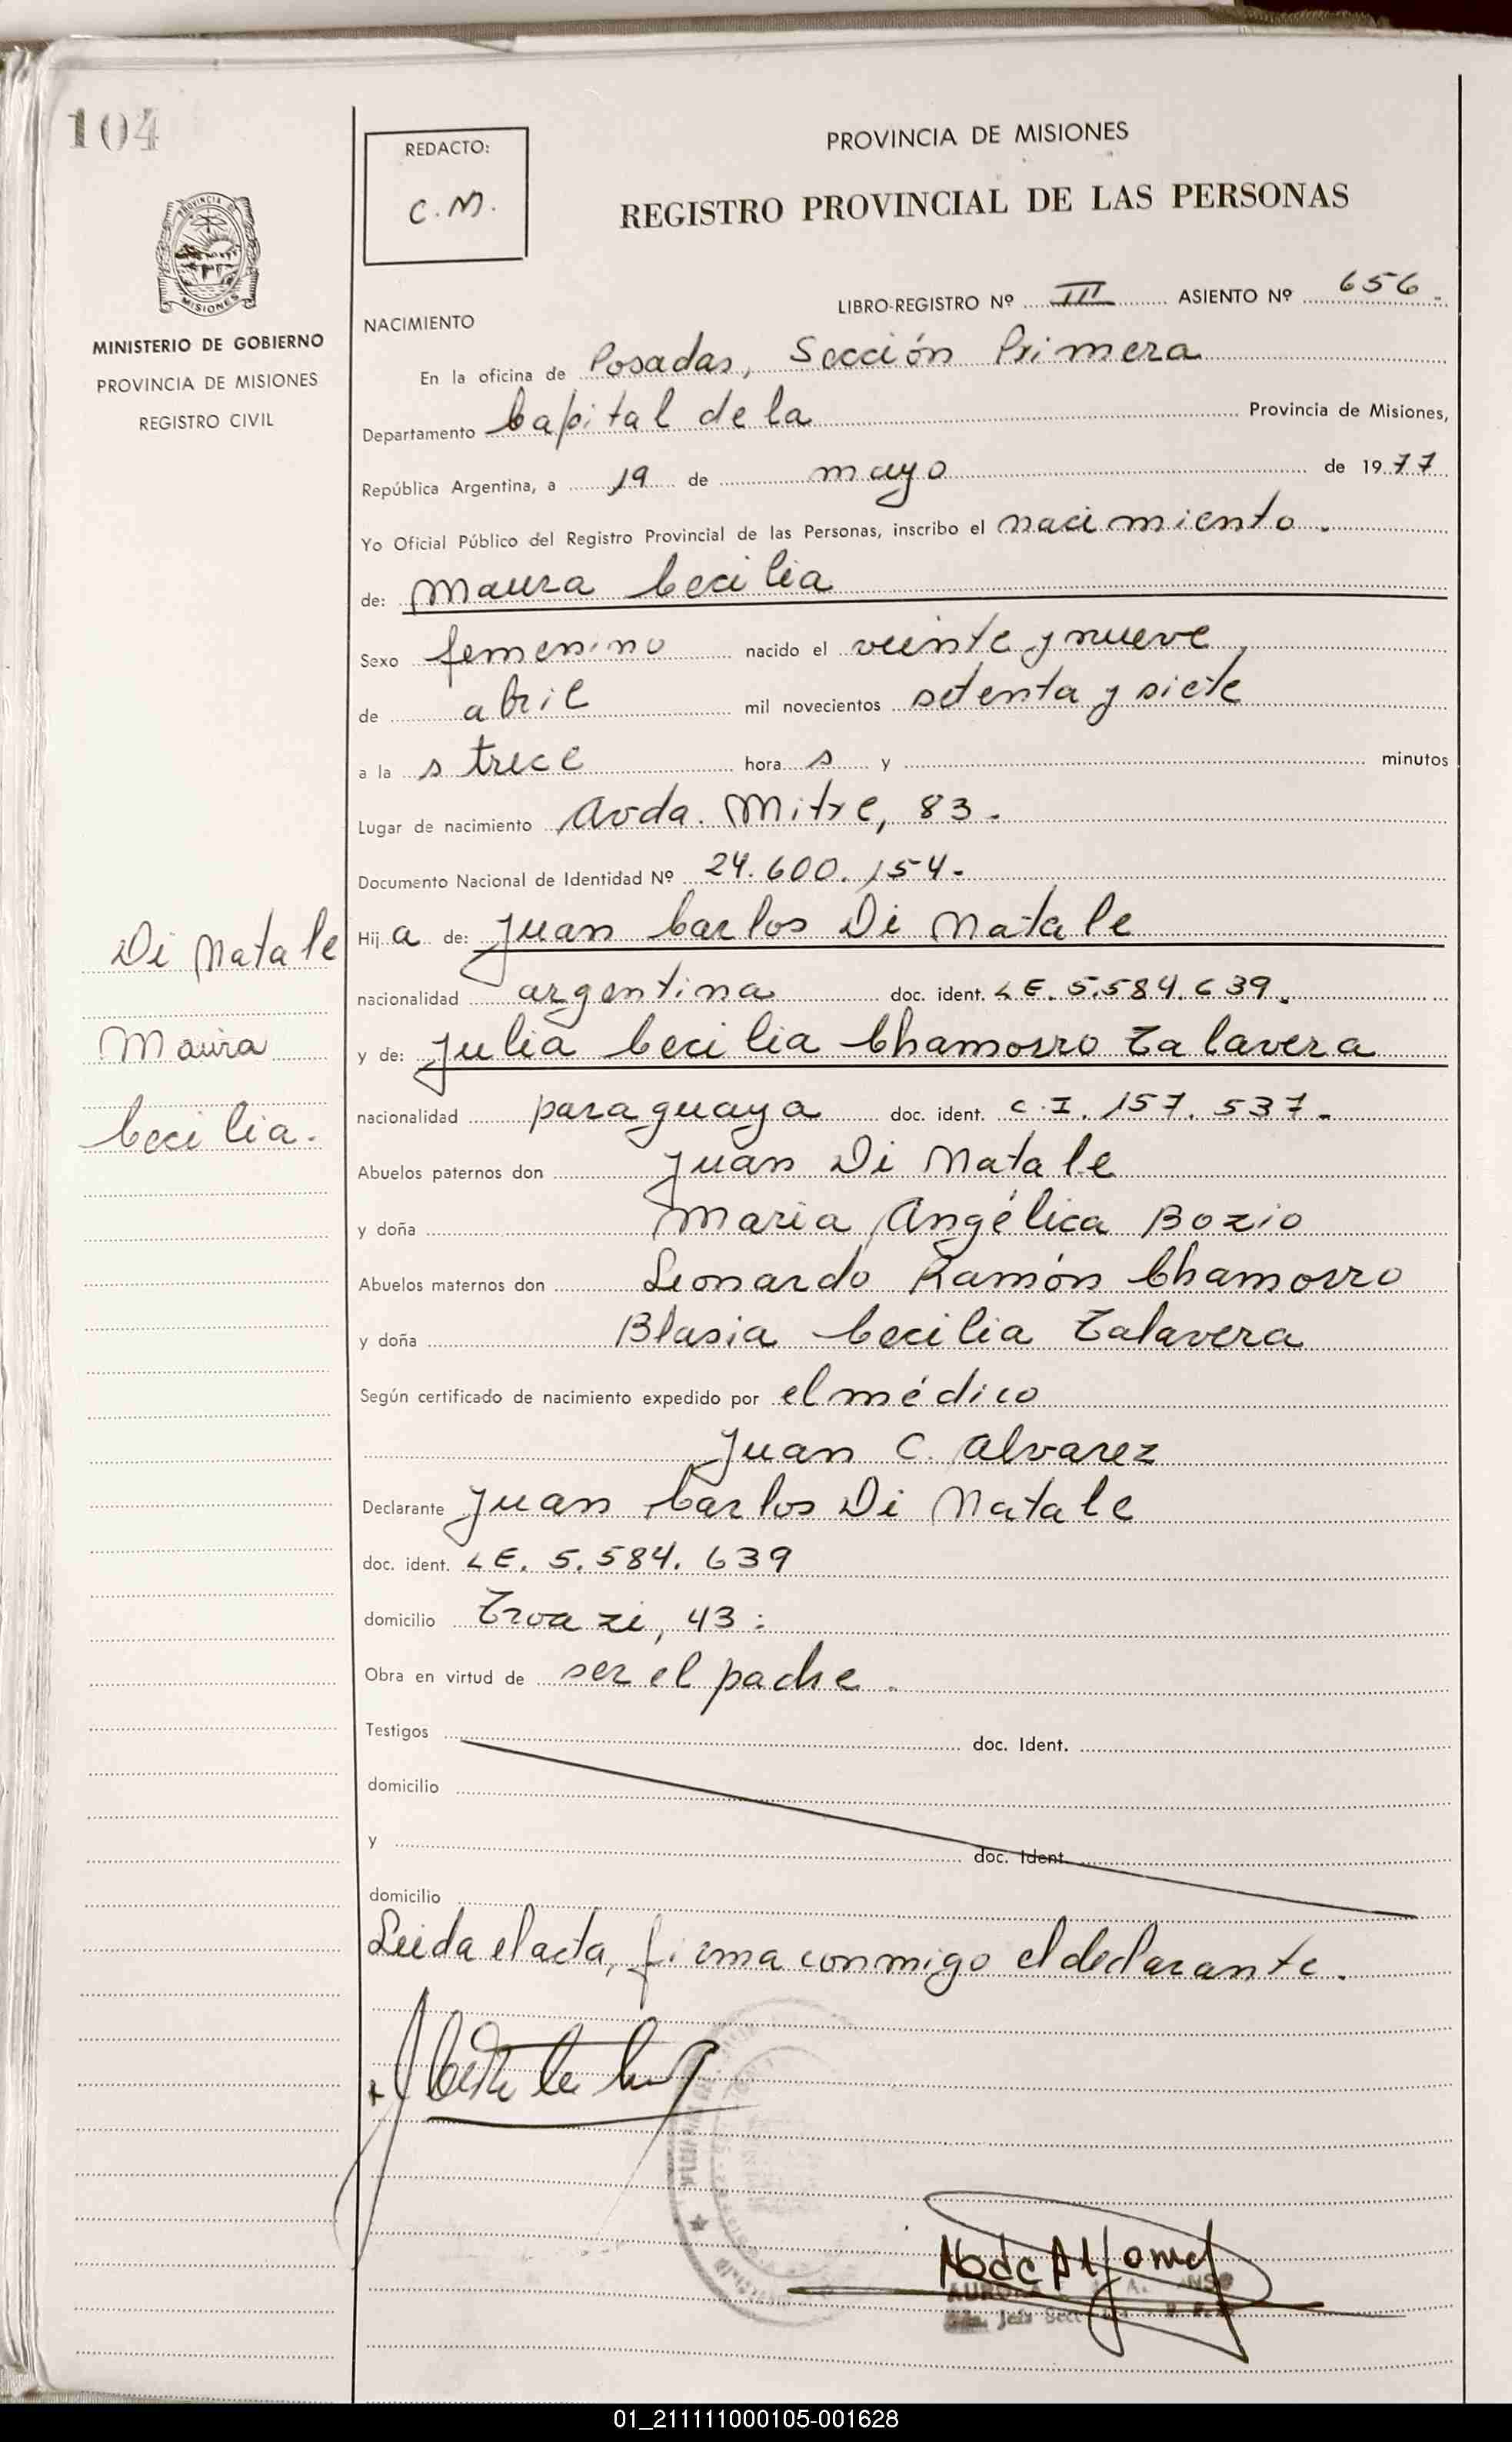 104
REDACTO:
C.M.
PROVINCIA DE MISIONES
REGISTRO PROVINCIAL DE LAS PERSONAS
MISIONES
MINISTERIO DE GOBIERNO
PROVINCIA DE MISIONES
REGISTRO CIVIL
LIBRO-REGISTRO Nº III ASIENTO Nº 656
NACIMIENTO
En la oficina de Posadas, Sección Primera
Departamento Capital de la Provincia de Misiones,
República Argentina, a 19 de mayo de 1977
Yo Oficial Público del Registro Provincial de las Personas, inscribo el nacimiento.
de: Maura Cecilia
Sexo femenino nacido el veinte y nueve
de abril mil novecientos setenta y siete
a la s trece hora s y minutos
Lugar de nacimiento Avda. Mitre, 83.
Documento Nacional de Identidad Nº 24.600.154.
Hij a de: Juan Carlos Di Natale
nacionalidad argentina doc. ident. LE. 5.584.639.
y de: Julia Cecilia Chamorro Talavera
nacionalidad paraguaya doc. ident. C.I. 157.537.
Abuelos paternos don Juan Di Natale
y doña Maria Angélica Bozio
Abuelos maternos don Leonardo Ramón Chamorro
y doña Blasia Cecilia Talavera
Según certificado de nacimiento expedido por el médico
Juan C. Alvarez
Declarante Juan Carlos Di Natale
doc. ident. LE. 5.584.639
domicilio 43
Obra en virtud de ser el padre.
Testigos doc. Ident.
domicilio
y doc. Ident.
domicilio
Leida el acta, firma conmigo el declarante.
Di Natale
Maura
Cecilia.
01_211111000105-001628